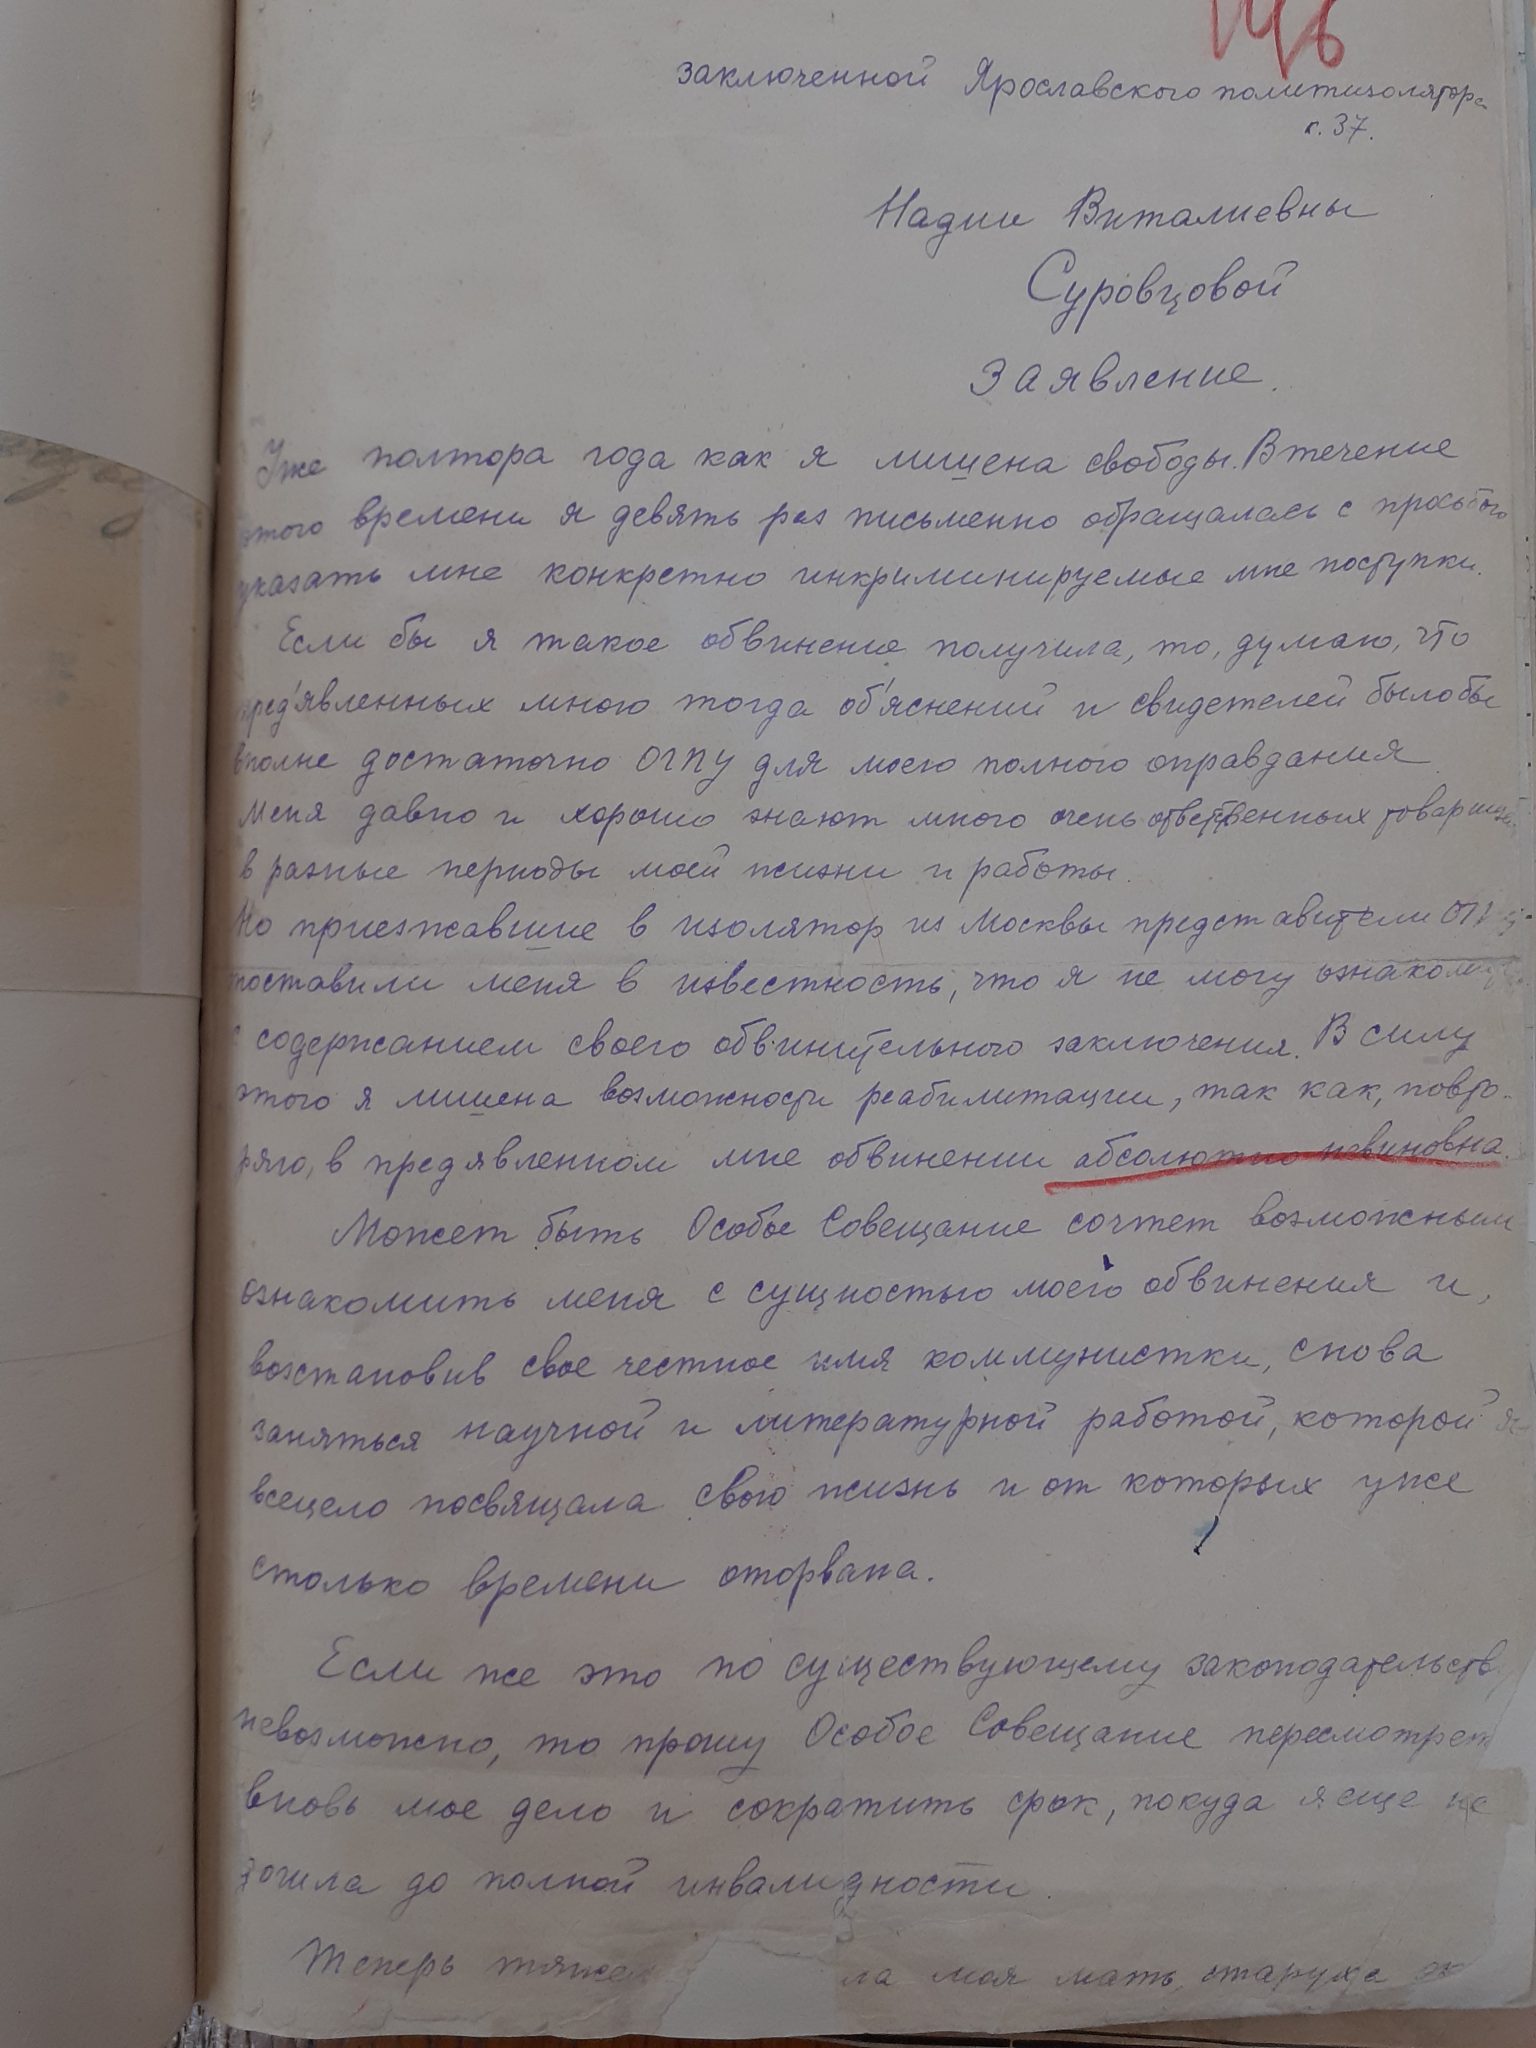 146
заключенной Ярославского политизолятора
к. 37.
Надии Виталиевны
Суровцовой
Заявление.
Уже полтора года как я лишена свободы. В течение
этого времени я девять раз письменно обращалась с просьбою
указать мне конкретно инкриминируемые мне поступки.
Если бы я такое обвинение получила, то, думаю, что
пред'явленных мною тогда об'яснений и свидетелей было бы
вполне достаточно ОГПУ для моего полного оправдания
Меня давно и хорошо знают много очень ответственных товарищей
в разные периоды моей жизни и работы.
Но приезжавшие в изолятор из Москвы представители ОГПУ
поставили меня в известность, что я не могу
с содержанием своего обвинительного заключения. В силу
этого я лишена возможности реабилитации, так как, повто-
ряю, в предявленном мне обвинении абсолютно невиновна.
Может быть Особое Совещание сочтет возможным
ознакомить меня с сущностью моего обвинения и,
возстановив свое честное имя коммунистки, снова
заняться научной и литературной работой, которой я
всецело посвящала свою жизнь и от которых уже
столько времени оторвана.
Если же это по существующему законодательству
невозможно, то прошу Особое Совещание пересмотреть
вновь мое дело и сократить срок, покуда я еще не
дошла до полной инвалидности.
Теперь ла моя мать, старуха